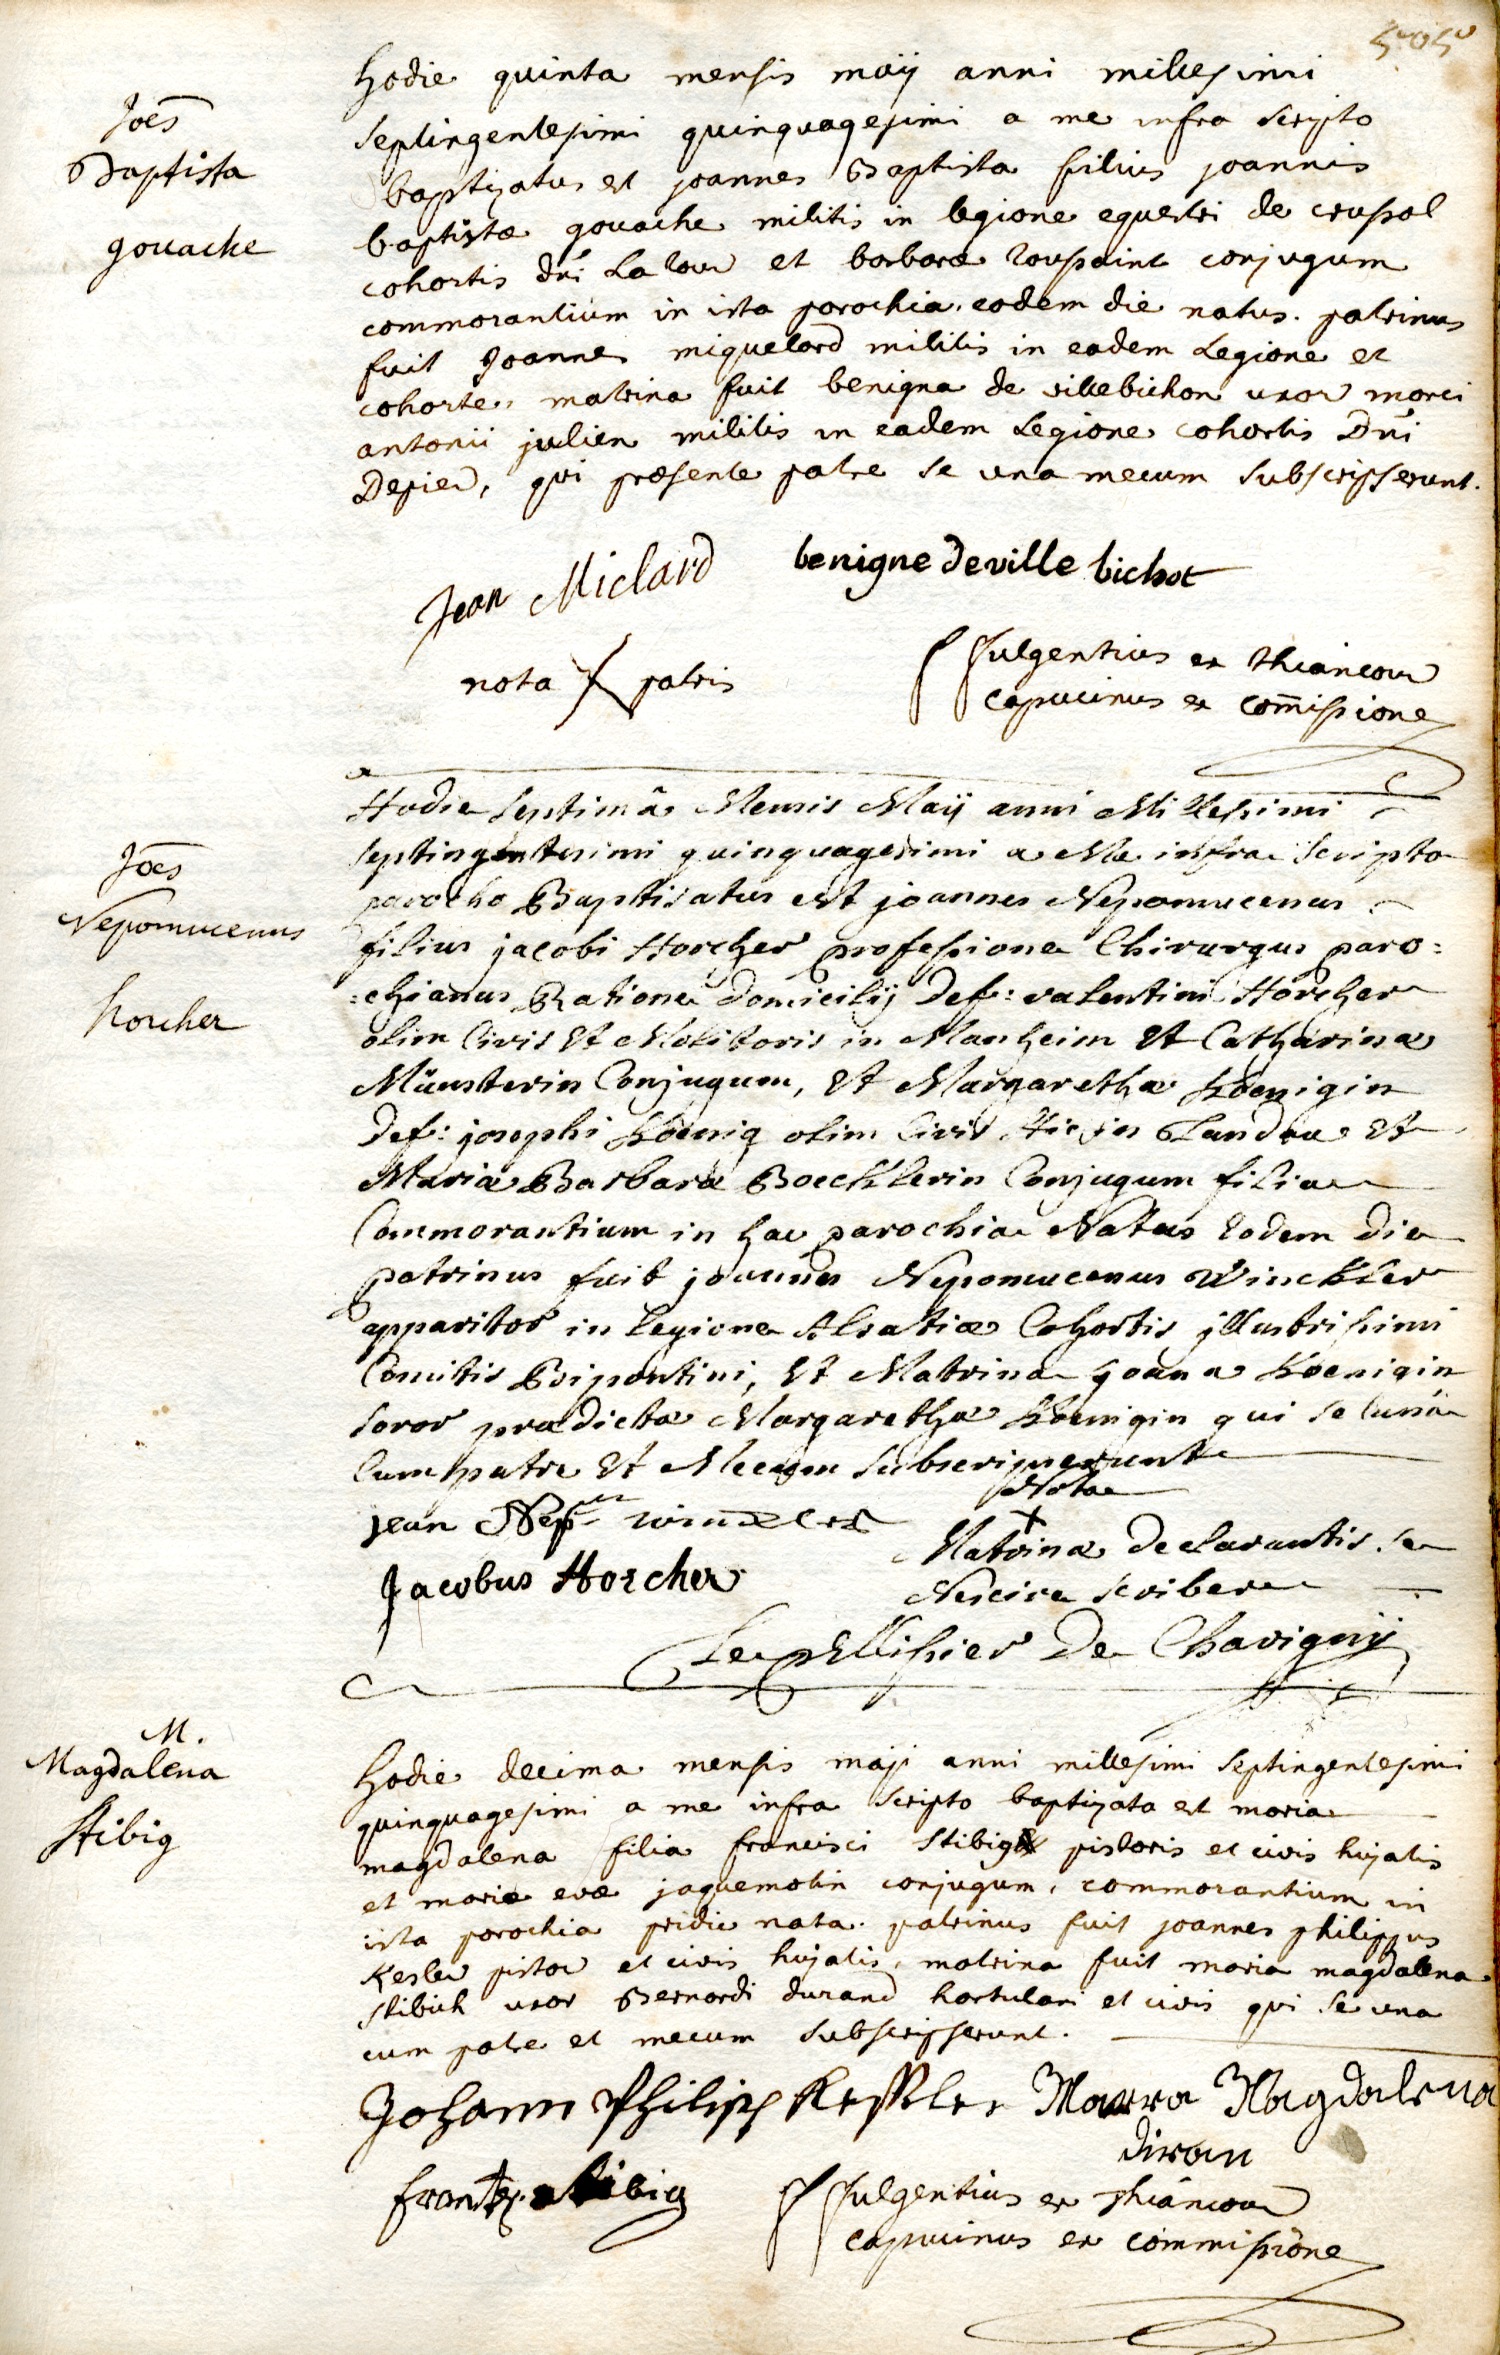 Joēs
Baptista
gouache
hodie quinta mensis maij anni millesimi
septingentesimi quinquagesimi a me infra scripto
baptizatus est joannes Baptista filius joannis
baptistæ gouache militis in legione equestri de crussol
cohortis dni La tour et barbaræ toussaint conjugum
commorantium in ista parochia. eodem die natus. patrinus
fuit Joannes miquelard militis in eadem Legione et
cohorte, matrina fuit benigna de villebichon uxor marci
antonii julien militis in eadem Legione cohortis Dni
Depier, qui præsente patre se una mecum subscripserunt.
Jean Miclard benigne deville bichot
nota patris
f fulgentius ex thiancour
capucinus ex com̄issione
Joēs
Nepomucenus
horcher
Hodie septimâ Mensis Maij anni Millesimi
septingentesimi quinquagesimi a Me infra scripto
parocho Baptisatus est joannes Nepomucenus
filius jacobi Horcher professione Chirurgus paro:
:chianus Ratione domicilij def: valentini Horcher
olim Civis Et Molitoris in Manheim Et Catharinæ
Münsterin Conjugum, Et Margarethæ Koenigin
def: josephi Koenig olim Civis Hic in Landau Et
Mariæ Barbaræ Boecklerin Conjugum filia
Commorantium in hac parochia Natus Eodem die
patrinus fuit joannes Nepomucenus Winckler
apparitor in Legione Alsatiæ Cohortis jllustrissimi
Comitis Bipontini, Et Matrina joanna Koenigin
soror prædictæ Margarethæ Koenigin qui se unâ
Cum patre Et Mecum subscripserunt
Nota
jean Nep winckler
+
Matrinæ declarantis se
Jacobus Horcher
Nescire scribere
Le pellissier De Chavigny
M.
Magdalena
Stibig
hodie decima mensis maji anni millesimi septingentesimi
quinquagesimi a me infra scripto baptizata est maria
magdalena filia francisci stibig pistoris et civis hujatis
et mariæ evæ jaquemotin conjugum, commorantium in
ista parochia pridie nata. patrinus fuit joannes philippus
Kesler pistor et civis hujatis, matrina fuit maria magdalena
stibich uxor Bernardi durand hortulani et civis qui se una
cum patre et mecum subscripserunt.
Johann Philipp Kessler Marra Magdalena
diran
frantz stibig
f fulgentius ex thiancour
capucinus ex commissione